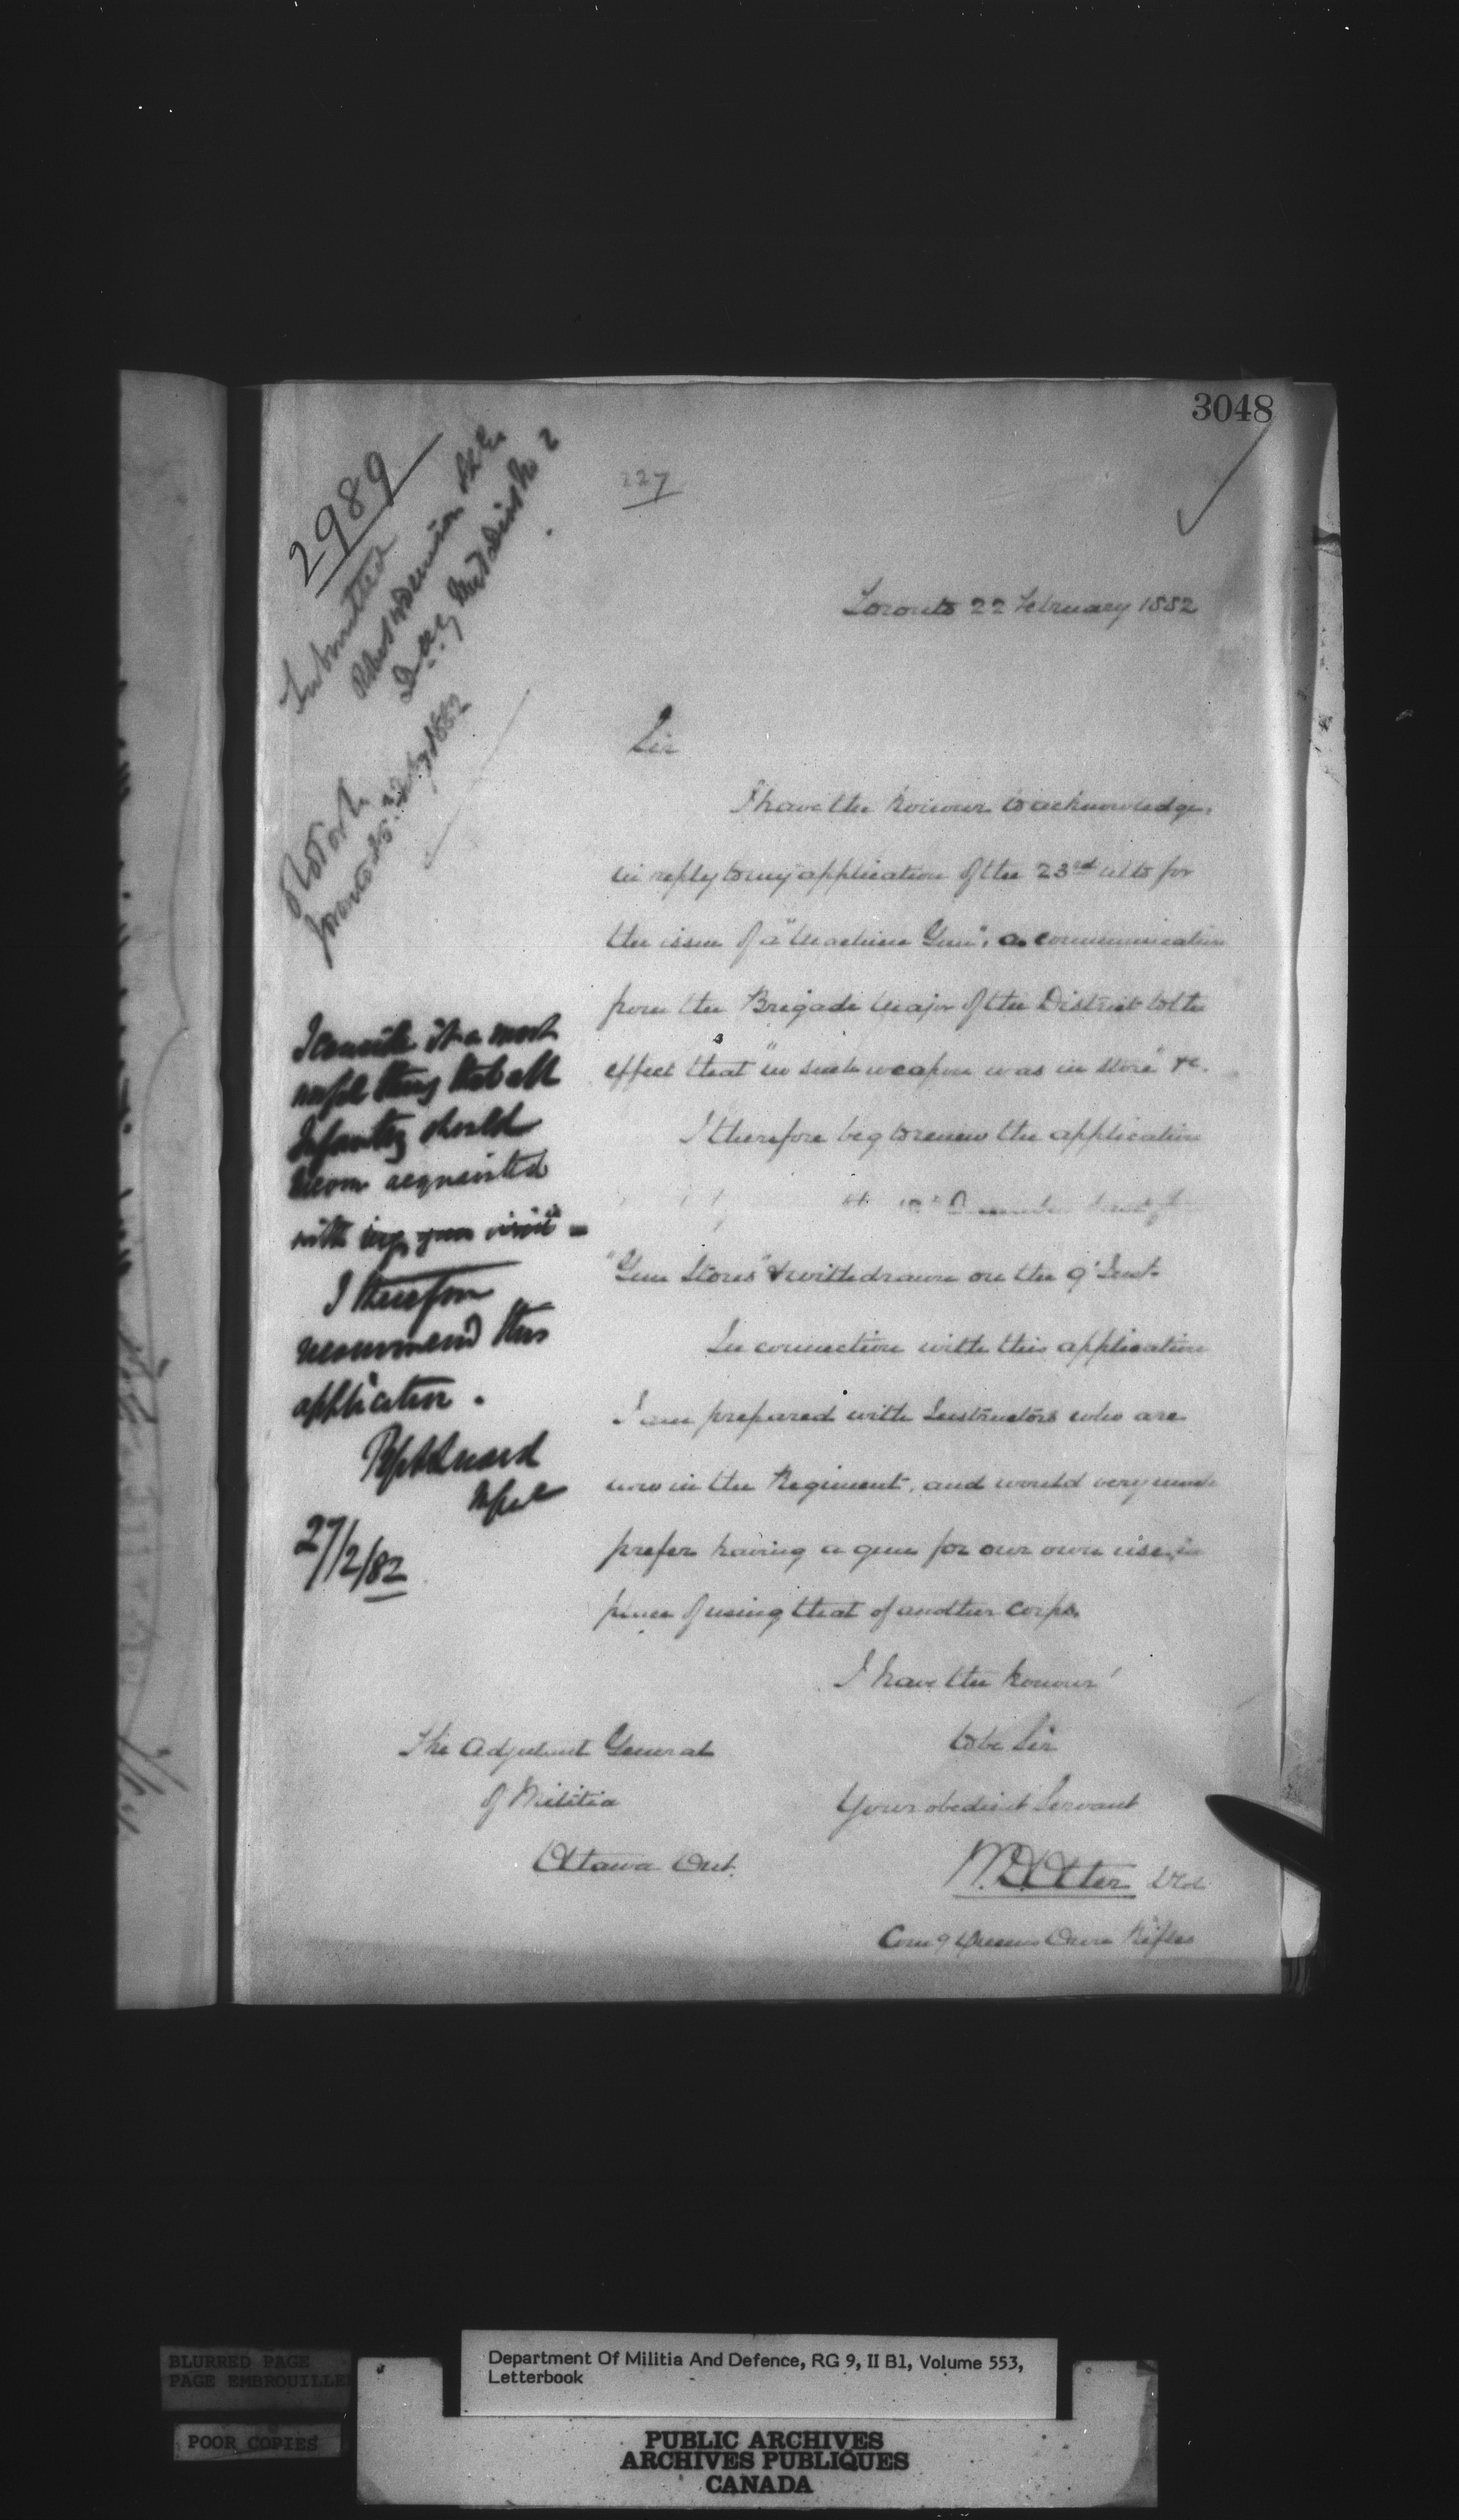 3048
227
2989
Submitted
D.A.G. Mil Dist No 2
Toronto 25. Feby 1882
Toronto 22 February 1882
Sir
I have the honour to acknowledge,
in reply to my application of the 23rd ulto for
the issue of a "Machine Gun", a communication
from the Brigade Major of the District to the
effect that "no such weapon was in store" &c.
I therefore beg to renew the application
"Gun Stores" & withdrawn on the 9' Inst.
In connection with this application
I am prepared with Instructors who are
now in the Regiment, and would very much
prefer having a gun for our own use, in
place of using that of another corps.
I have the honour
to be Sir
Your obedient Servant
W.D. Otter
Comg Queens Own Rifles
The Adjutant General
of Militia
Ottawa Ont.
I consider it a most
useful thing that all
Infantry should
become acquainted
with
I therefore
recommend this
application.
27/2/82
BLURRED PAGE
PAGE EMBROUILLE
POOR COPIES
Department Of Militia And Defence, RG 9, II B1, Volume 553,
Letterbook
PUBLIC ARCHIVES
ARCHIVES PUBLIQUES
CANADA